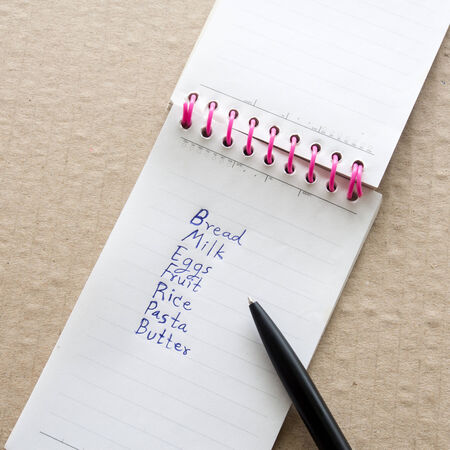 Bread
Milk
Eggs
Fruit
Rice
Pasta
Butter